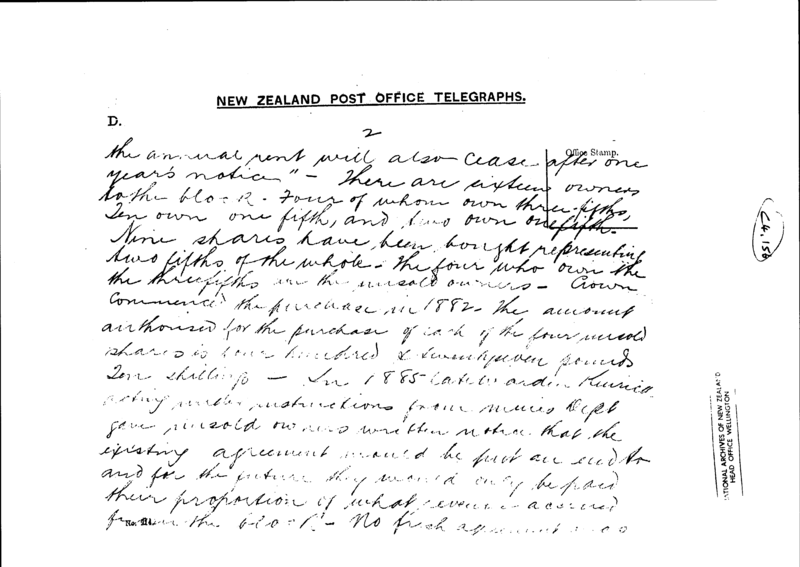 NEW ZEALAND POST OFFICE TELEGRAPHS.
D.
2
Office Stamp.
the annual rent will also cease after one
year's notice" - There are sixteen owners
to the block - Four of whom own three fifths,
Ten own one fifth, and two own one fifth.
Nine shares have been bought representing
two fifths of the whole - The four who own the
the three fifths are the unsold owners - Crown
Commenced the purchase in 1882 - The amount
authorised for the purchase of each of the four unsold
shares is four hundred & twenty seven pounds
Ten shillings - In 1885 late Warden
acting under instructions from mines Dept
gave unsold owners written notice that the
existing agreement would be put an end to
and for the future they would only be paid
their proportion of what revenue accrued
from the block - No fresh agreement was
No. 21.
C4. 156
NATIONAL ARCHIVES OF NEW ZEALAND
HEAD OFFICE WELLINGTON